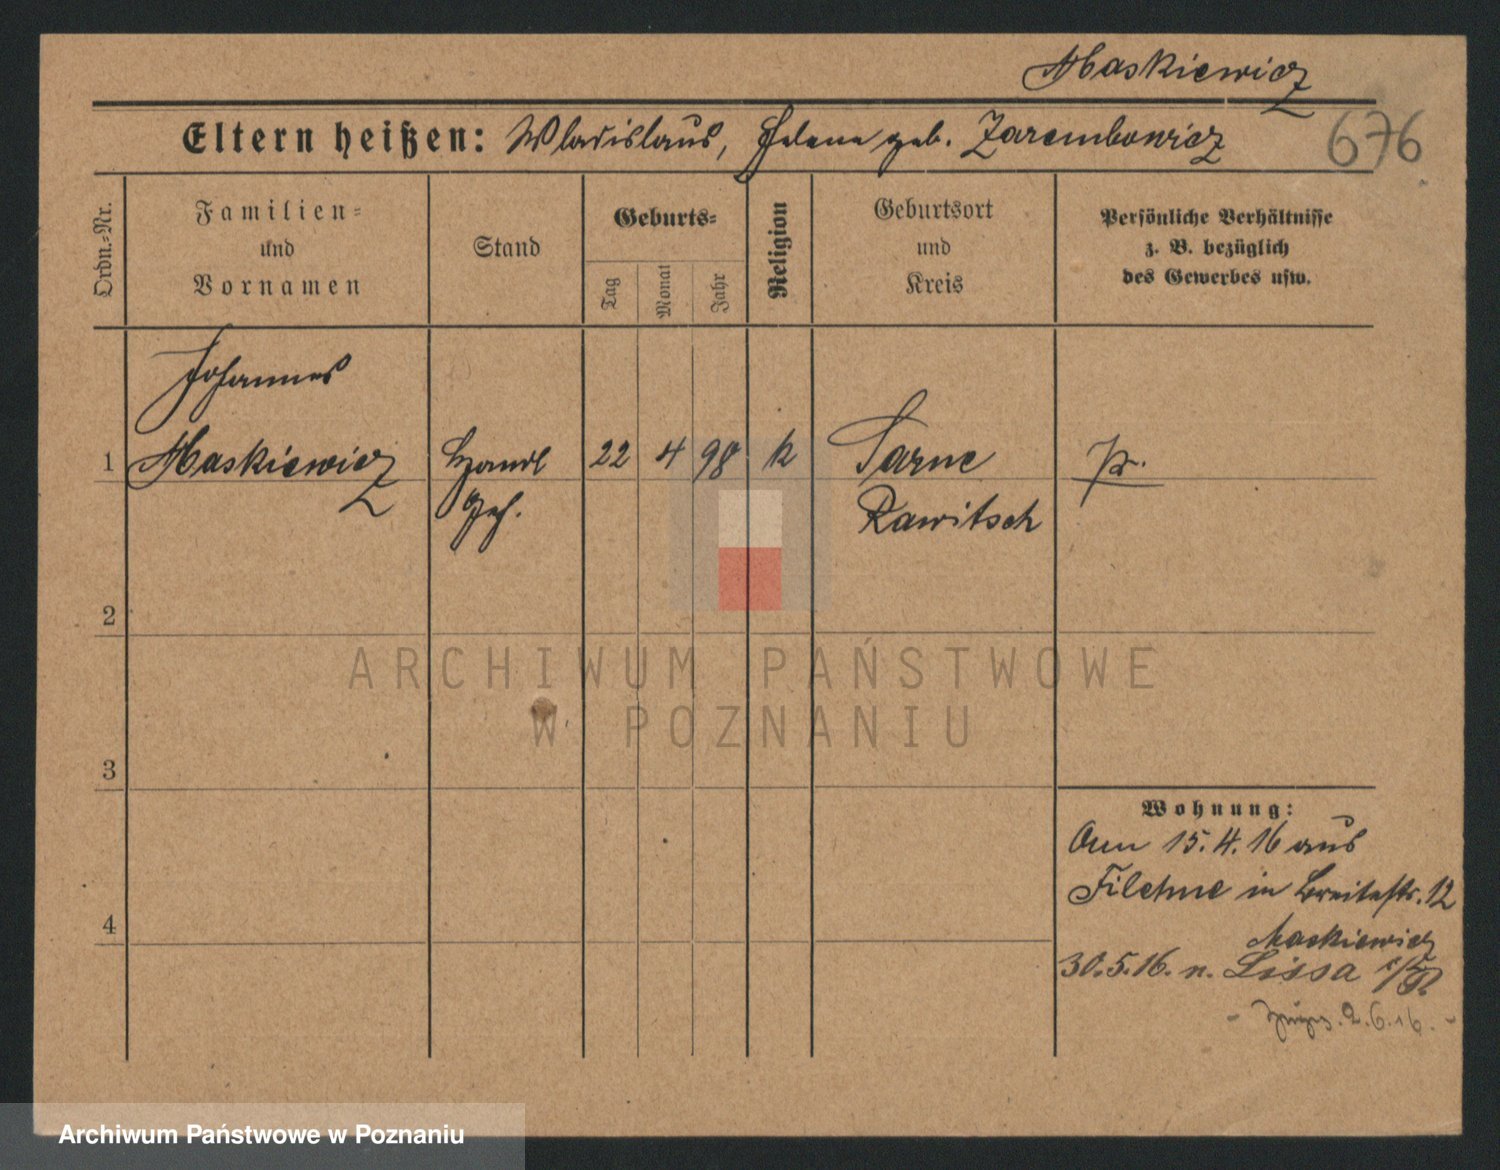 Maskiewicz
Eltern heißen: Wladislaus, Helene geb. Zarembowicz
676
Ordn.-Nr.
Familien-
und
Vornamen
Stand
Geburts-
Tag
Monat
Jahr
Religion
Geburtsort
und
Kreis
Persönliche Verhältnisse
z. B. bezüglich
des Gewerbes usw.
Johannes
1 Maskiewicz Handl 22 4 98 k Sarne
Geh. Rawitsch
2
ARCHIWUM PAŃSTWOWE
W POZNANIU
3
Wohnung:
15.4.16 aus
Filehne in Breitestr. 12
4
Maskiewicz
30.5.16. n. Lissa i/P
2.6.16.
Archiwum Państwowe w Poznaniu